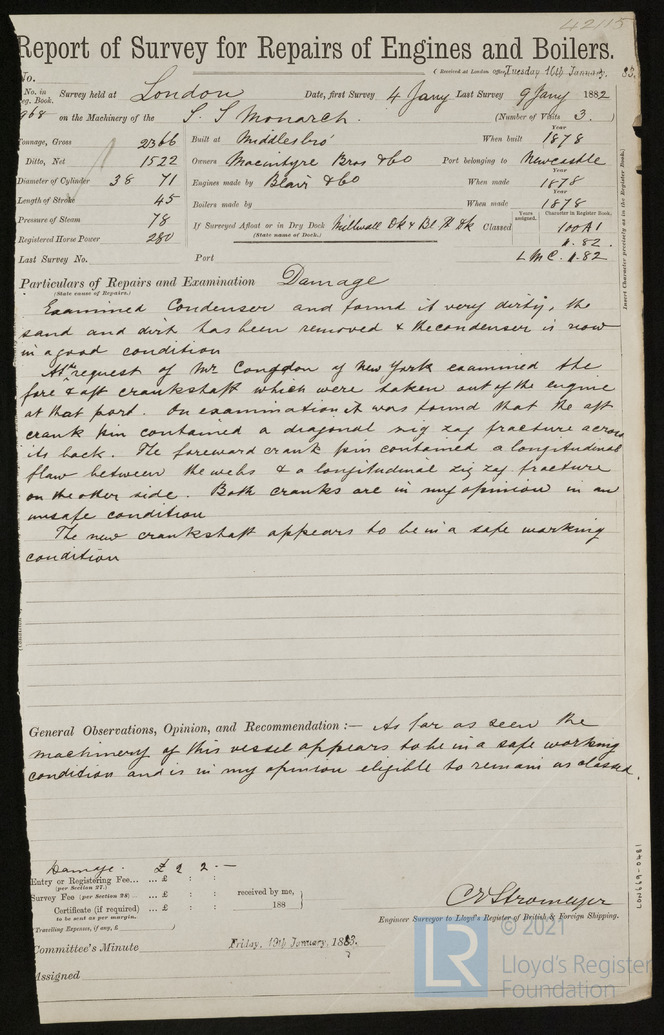 42115
Report of Survey for Repairs of Engines and Boilers.
No. (Received at London Office, Tuesday 16th January, 83.
No. in Reg. Book. Survey held at London Date, first Survey 4 Jany Last Survey 9 Jany 1882
968 on the Machinery of the S. S Monarch. (Number of Visits 3.)
Tonnage, Gross 2366 Built at Middlesbro' When built Year 1878
Ditto, Net 1522 Owners Macintyre Bros & Co Port belonging to Newcastle
Diameter of Cylinder 38 71 Engines made by Blair & Co When made Year 1878
Length of Stroke 45 Boilers made by When made Year 1878
Pressure of Steam 78 If Surveyed Afloat or in Dry Dock Millwall Dk & Bl. Dk Classed Years assigned. Character in Register Book. 100 A1
(State name of Dock.)
Registered Horse Power 280 1.82.
Last Survey No. Port LMC. 1.82
Insert Character precisely as in the Register Book.
Particulars of Repairs and Examination Damage
(State nature of Repairs.)
Examined Condenser and found it very dirty, the
sand and dirt has been removed & the condenser is now
in a good condition
At the request of Mr Congdon of New York examined the
fore & aft crankshaft which were taken out of the engine
at that port. On examination it was found that the aft
crank pin contained a diagonal zig zag fracture across
its back. The foreward crank pin contained a longitudinal
flaw between the webs & a longitudinal zig zag fracture
on the other side. Both cranks are in my opinion in an
unsafe condition
The new crankshaft appears to be in a safe working
condition
General Observations, Opinion, and Recommendation :— As far as seen the
machinery of this vessel appears to be in a safe working
condition and is in my opinion eligible to remain as classed.
Damage. £ 2 2 . —
Entry or Registering Fee... ... £ : :
(per Section 27.)
Survey Fee (per Section 28) ... ... £ : : received by me,
Certificate (if required) ... £ : : 188
to be sent as per margin.
(Travelling Expenses, if any, £ )
C E Stromeyer
Engineer Surveyor to Lloyd's Register of British & Foreign Shipping.
Committee's Minute Friday, 19th January, 1883.
Assigned
LON669-0481
© 2021
LR
Lloyd's Register
Foundation